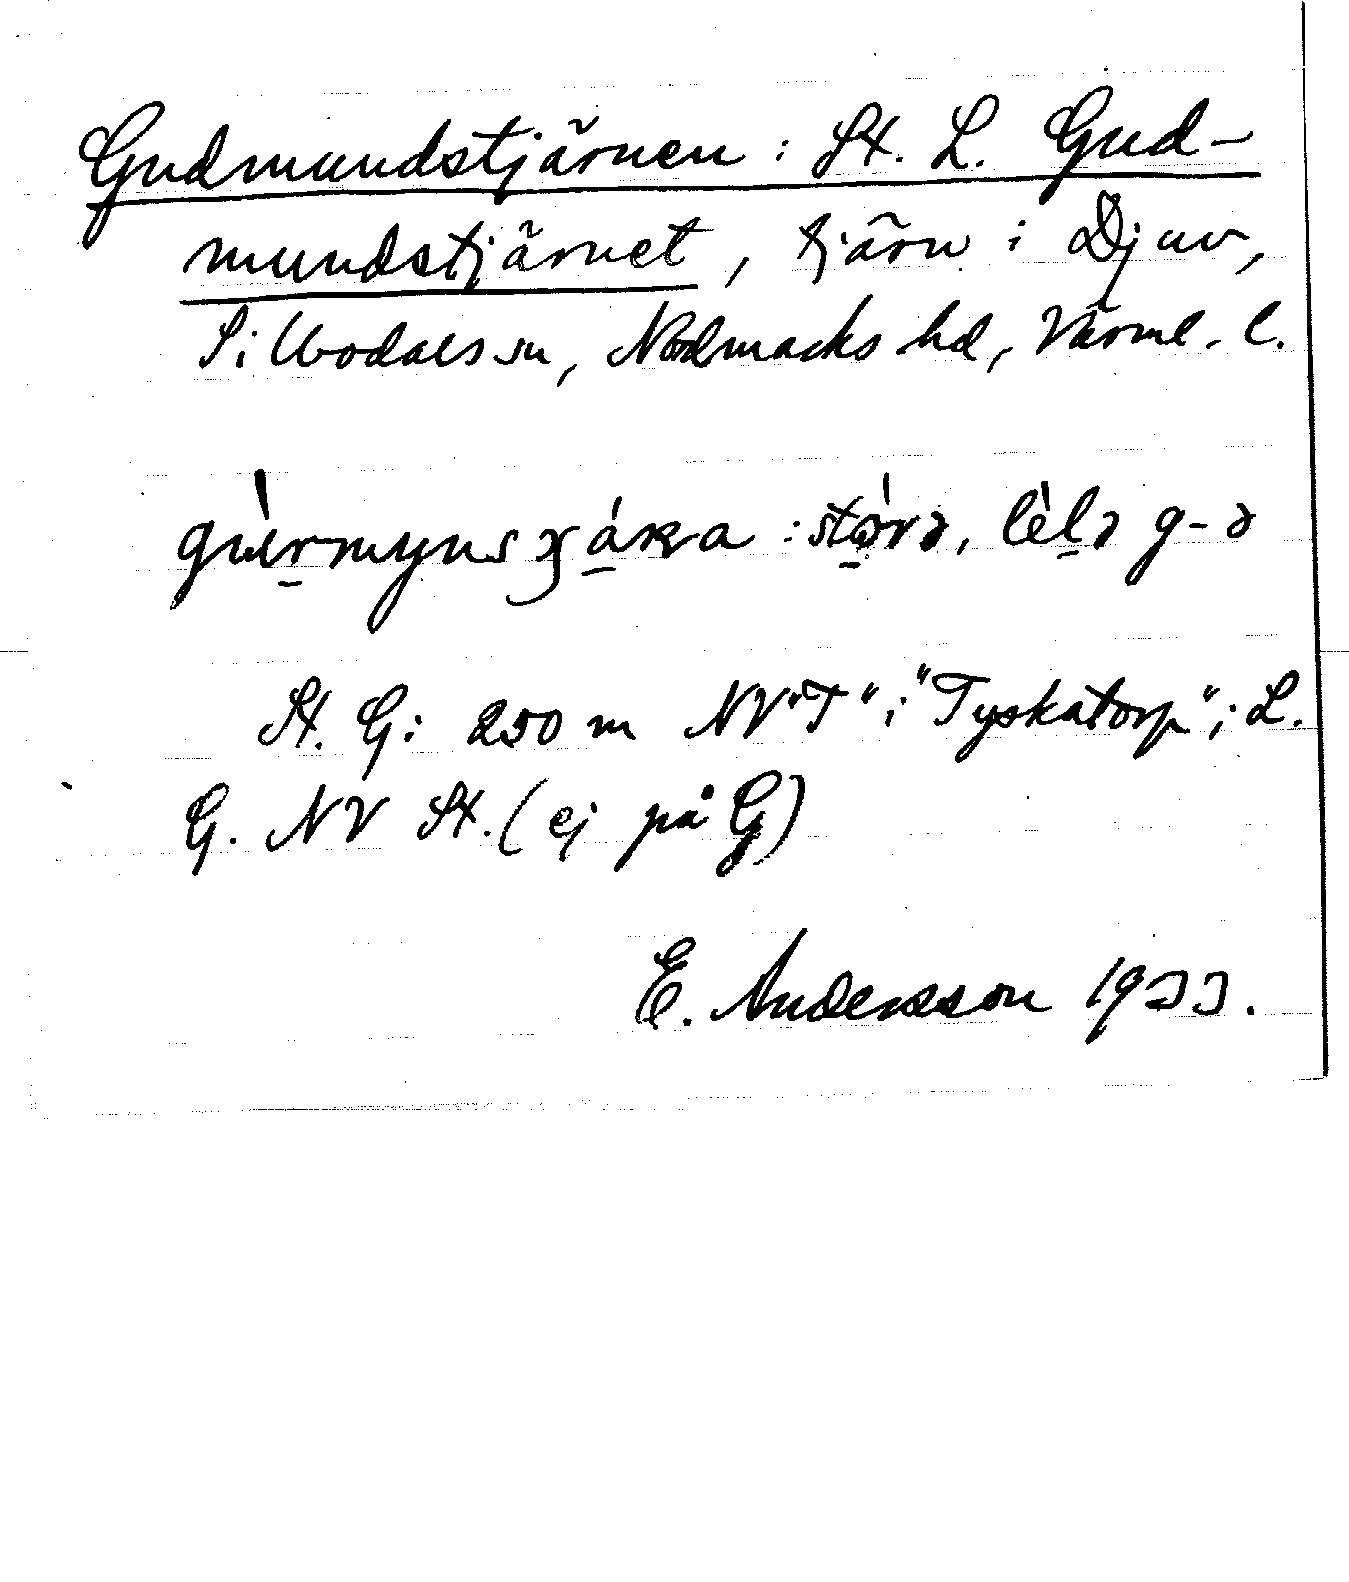 Gudmundstjärnen : St. L. Gud-
mundstjärnet, tjärn i Djuv,
Silbodals sn, Nordmarks hd, Värml. l.
: stórə, lèlə g-ə
St. G: 250 m NV "T" i "Tyskatorp"; L.
G. NV St. (ej på G)
E. Andersson 1933.